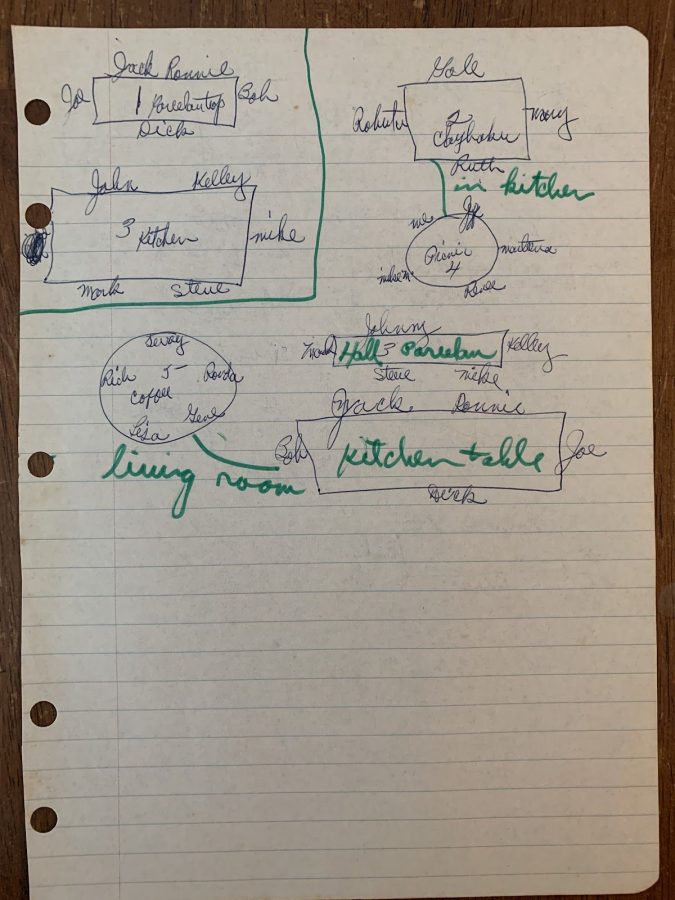 Jack Ronnie
Joe 1 Porcelaintop Bob
Dick
John Kelley
3 Kitchen mike
Mark Steve
Gale
2 mary
Ruth
in kitchen
me Jeff
Picnic
4
Renee
Rich 5 Ronda
coffee
Lisa Gene
living room
Johnny
Mark Hall 3 Porcelain Kelley
Steve Mike
Jack Ronnie
Bob Kitchen table Joe
Dick